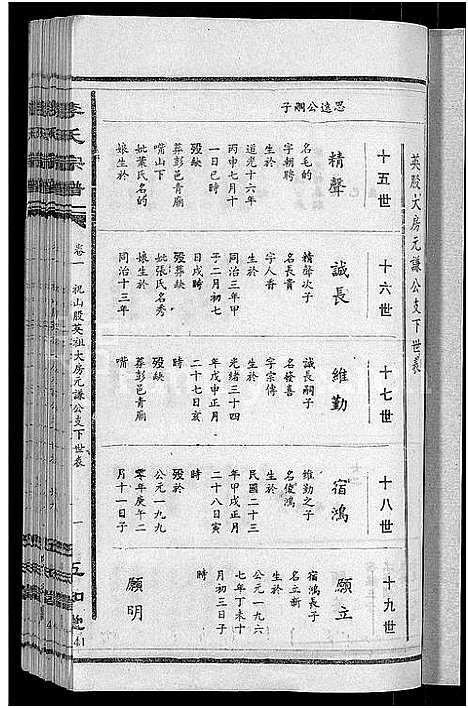 英股大房元謙公支下世表
思遠公嗣子
十五世
精聲
名毛的
字朝聘
生於
道光十六年
丙申七月十
一日巳時
歿缺
葬彭邑青廟
嘴山下
妣葉氏名的
娘生於
十六世
誠長
精聲次子
名長貴
字人香
生於
同治三年甲
子二月初七
日戌時
歿葬缺
妣張氏名秀
娘生於
同治十三年
十七世
維勤
誠長嗣子
名發喜
字宗傳
生於
光緒三十四
年戊申正月
二十七日亥
時
歿缺
葬彭邑青廟
嘴
十八世
宿鴻
維勤之子
名俊鴻
生於
民國二十三
年甲戌正月
二十八日寅
時
歿於
公元一九九
零年庚午二
月十一日子
十九世
願立
宿鴻長子
名立新
生於
公元一九六
七年丁未十
月初三日子
時
願明
李氏宗譜
卷一
祝山股英祖大房元謙公支下世表
一
五知
41